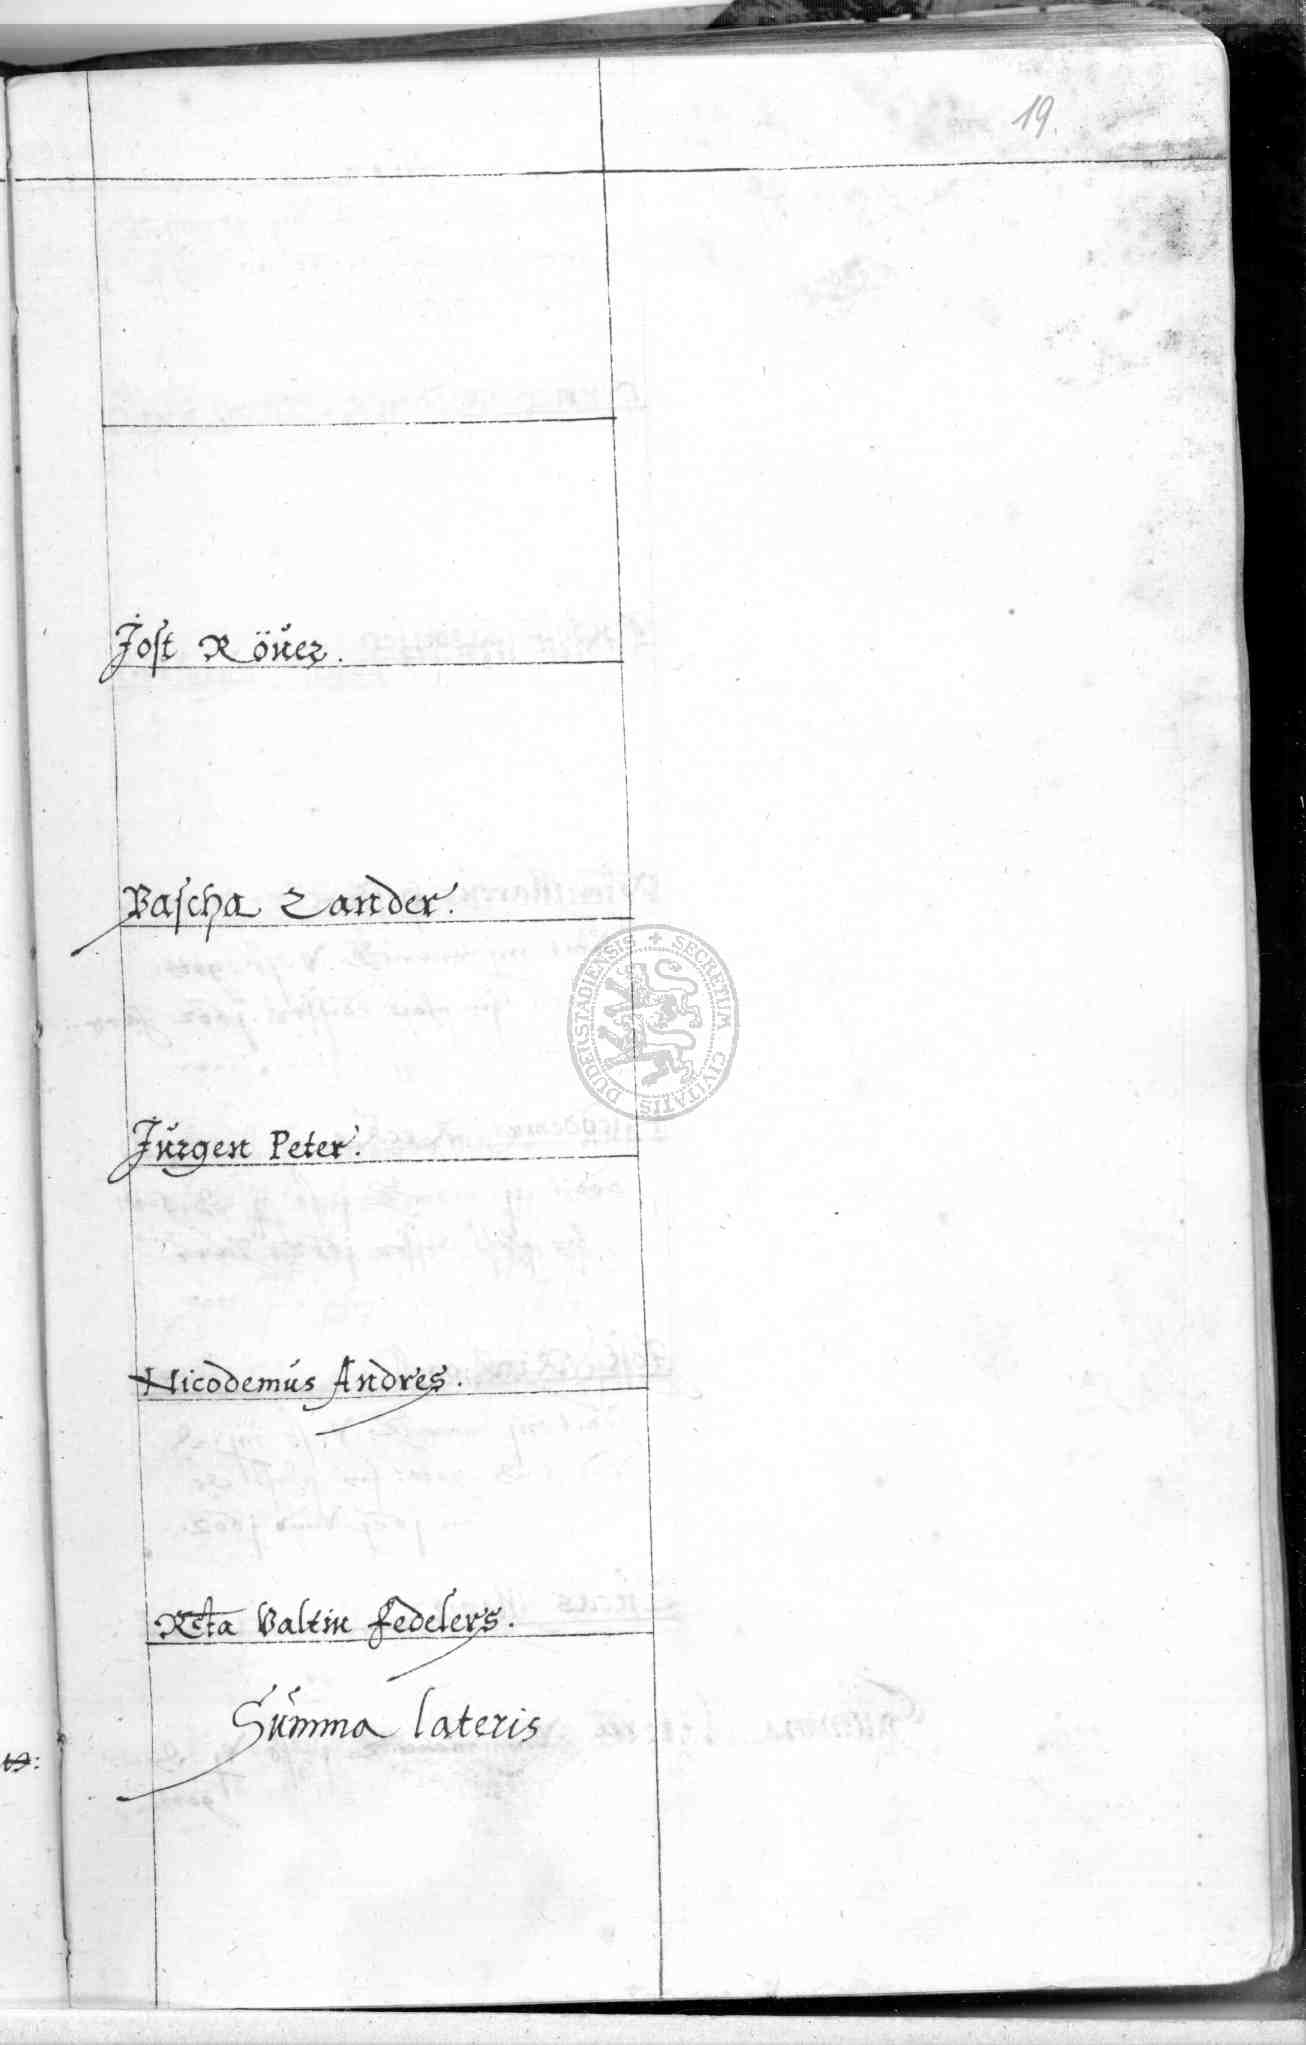 19.
Jost Röuer.
Pascha Zander.
DUDERSTADIENSIS + SECRETUM CIVITATIS
Jürgen Peter.
Nicodemus Andres.
Rcta Valtin Fedelers.
Summa lateris